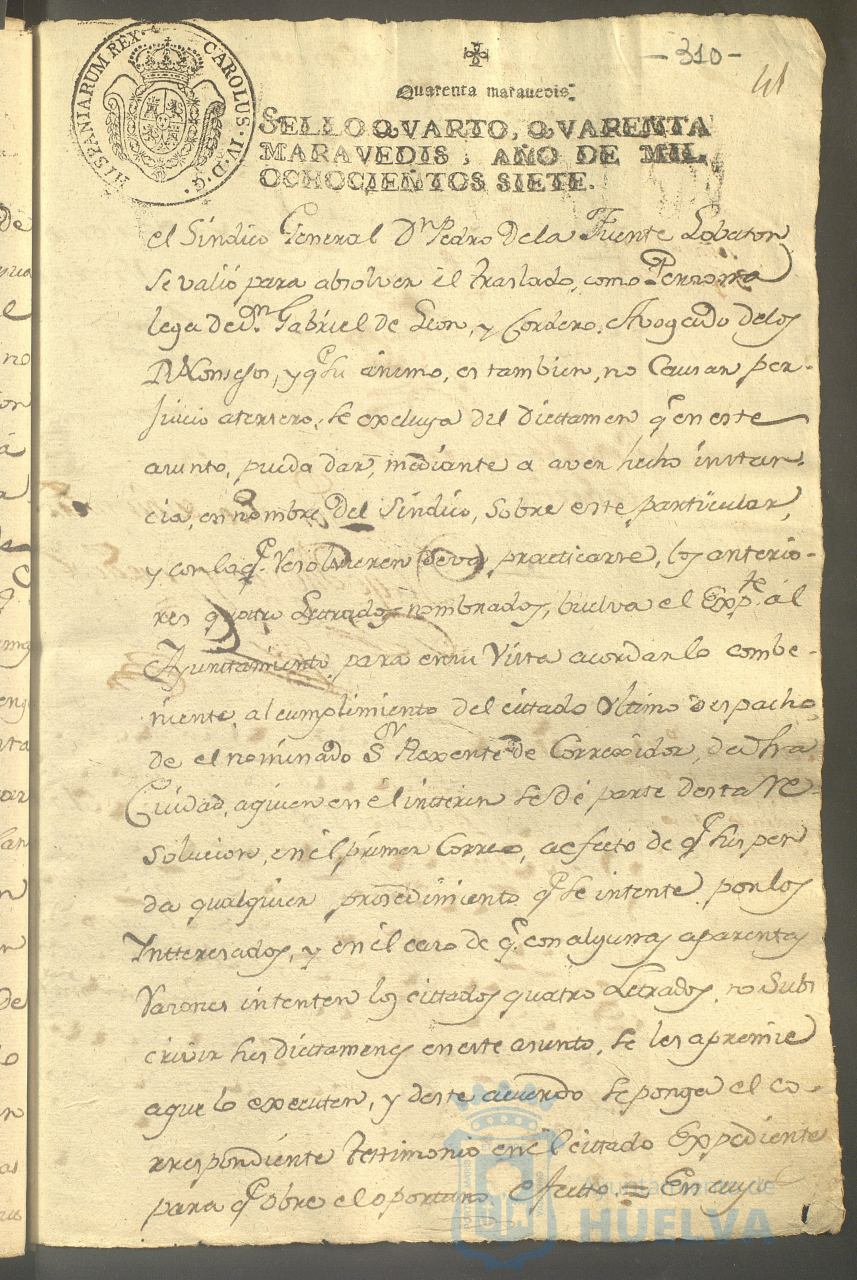 HISPANIARUM REX. CAROLUS. IV. D. G.
-310-
41
Quarenta marauedis.
SELLO QVARTO, QVARENTA
MARAVEDIS, AÑO DE MIL
OCHOCIENTOS SIETE.
el Sindico General Dn Pedro de la Fuente Lobaton
se valió para absolver el traslado, como Persona
lega de Dn Gabriel de Leon, y Cordero, Avogado de los
Rs Consejos, y qe su ánimo, es tambien, no Causar per-
juicio a tersero, se excluya del Dicttamen qe en este
asunto, pueda dar, mediante a aver hecho instan-
cia, en nombre del Sindico, Sobre este particular,
y con la qe Resolvieren deva practicarse, los anterio-
res quatro Letrados nombrados, buelva el Expte al
Ayuntamiento para en su Vista acordar lo combe-
niente, al cumplimiento del cittado Vltimo despacho,
de el nominado Sr Rexente de Correxidor, de dha
Ciudad, a quien en el intterin se dé parte desta Re-
solucion, en el primer Correo, a efecto de qe suspen
da qualquier prosedimiento qe se intente, por los
Yntteresados, y en el caso de qe con algunas aparentes
Rasones intenten los cittados quatro Letrados, no Subs
crivir sus Dicttamenes en este asunto, se les apremie
a que lo executen, y deste acuerdo se ponga el co-
rrespondiente Testimonio en el cittado Expediente
para qe obre el oportuno efecto. = En cuyo
Ayuntamiento de
HUELVA